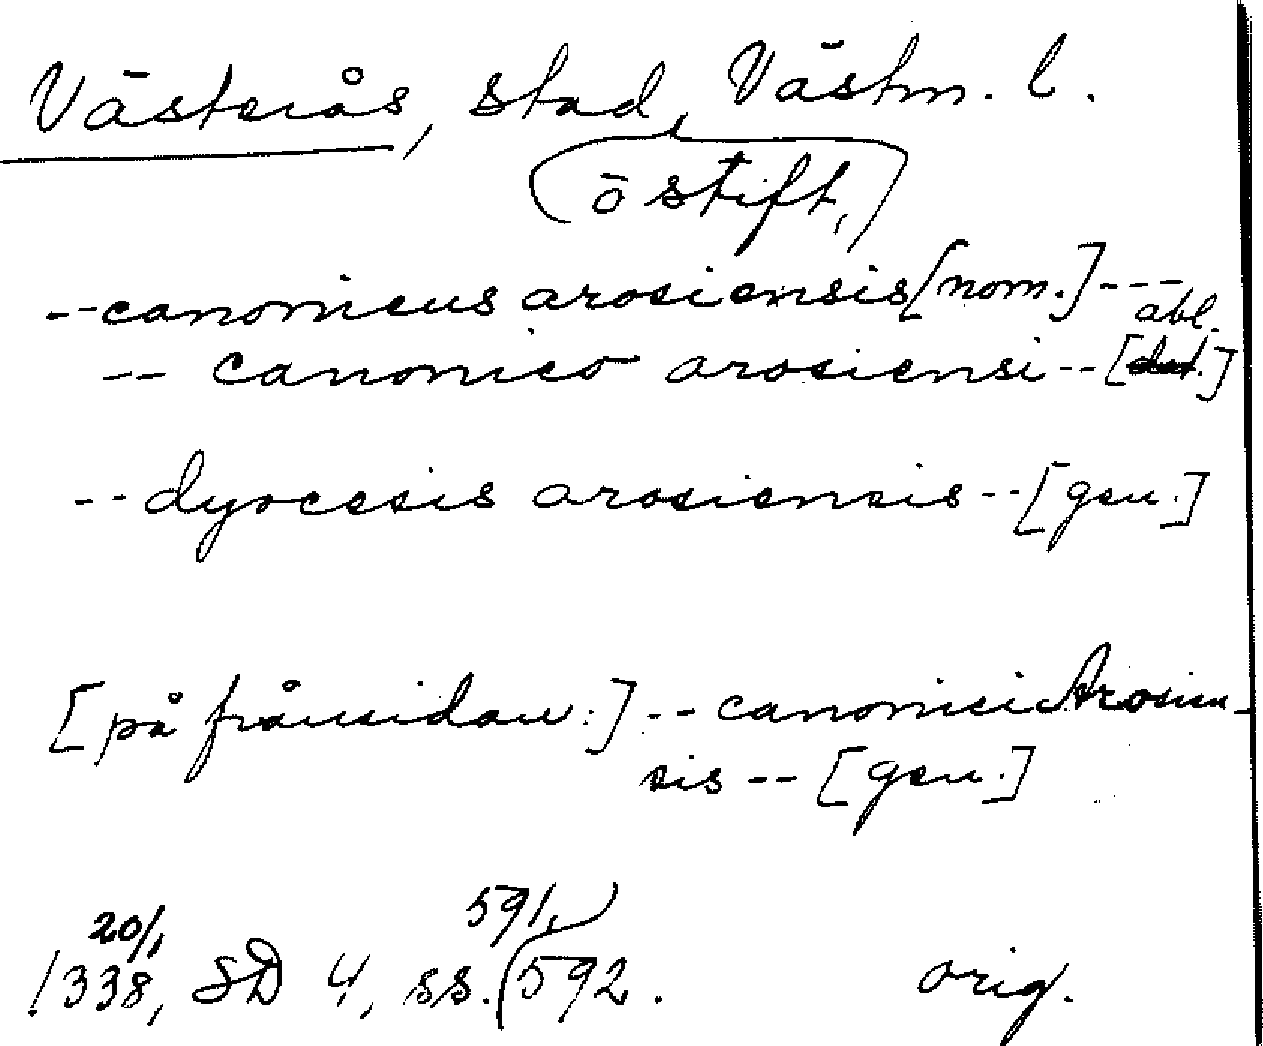 Västerås, stad, Västm. l.
o stift,
--canonicus arosiensis [nom.]---
abl.
-- canonico arosiensi--[dat.]
--dyocesis arosiensis--[gen.]
[på frånsidan:]--canonici Arosien-
sis--[gen.]
20/1 591,
1338, SD 4, ss. 592. orig.